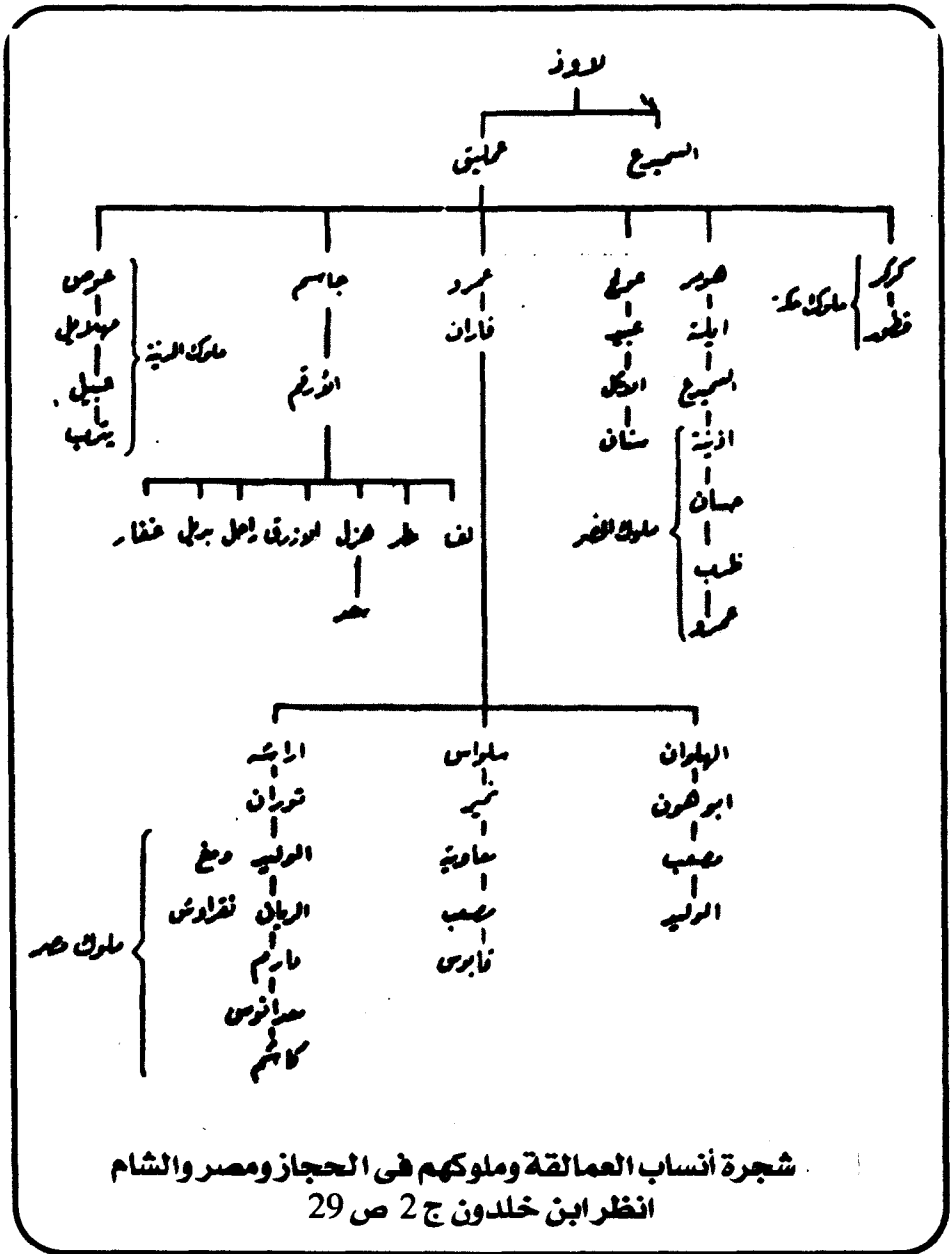 لاوذ
السميدع
عمليق
كركر
قطور
ملوك مكة
هومر
ايلة
السميدع
اذينة
حسان
ظرب
عمرو
ملوك الحضر
عوج
عبيد
الاكل
سنان
عمرو
فاران
جاسم
الأرقم
لف مطر هزل الازرق راحل بديل غفار
سعد
عوص
مهلايل
عبيل
يثرب
ملوك المدينة
الهلوان
ابو هون
مصعب
الوليد
سلواس
نمير
معاوية
مصعب
قابوس
اراشه
توران
الوليد ومغ
الريان نقراوش
دارم
معدانوس
كاشم
ملوك مصر
شجرة أنساب العمالقة وملوكهم فى الحجاز ومصر والشام
انظر ابن خلدون ج 2 ص 29